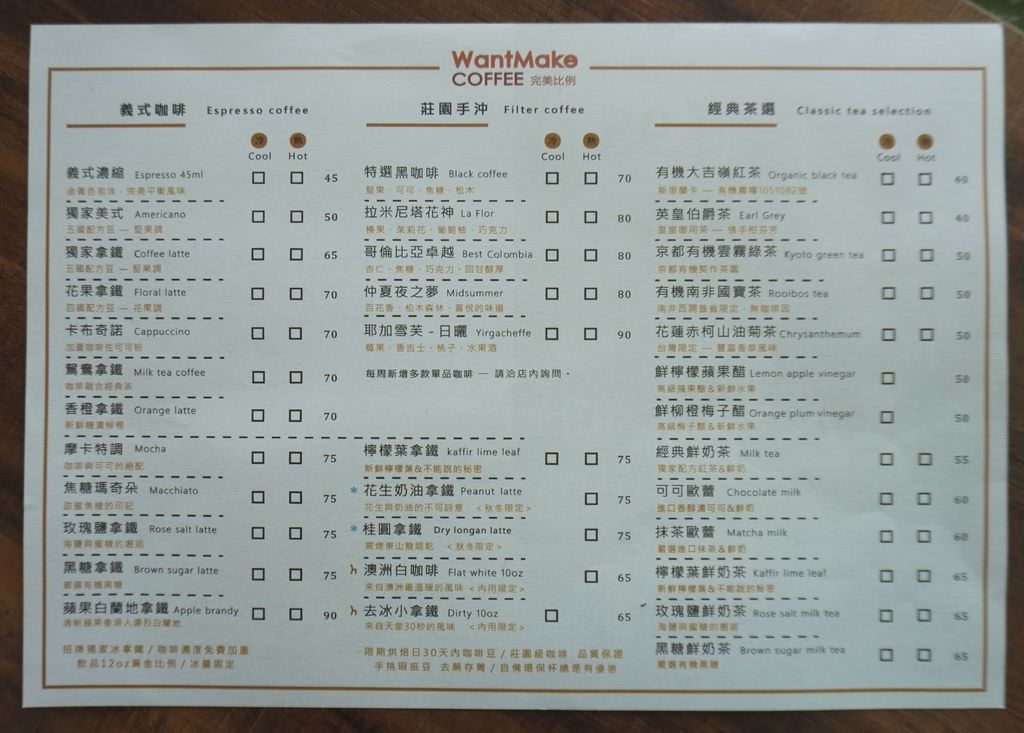 WantMake
COFFEE 完美比例
義式咖啡 Espresso coffee
冷 熱
Cool Hot
義式濃縮 Espresso 45ml 45
金黃色泡沫．完美平衡風味
獨家美式 Americano 50
五國配方豆 — 堅果調
獨家拿鐵 Coffee latte 65
五國配方豆 — 堅果調
花果拿鐵 Floral latte 70
四國配方豆 — 花果調
卡布奇諾 Cappuccino 70
加重咖啡佐可可粉
鴛鴦拿鐵 Milk tea coffee 70
咖啡融合經典茶
香橙拿鐵 Orange latte 70
新鮮糖漬柳橙
摩卡特調 Mocha 75
咖啡與可可的絕配
焦糖瑪奇朵 Macchiato 75
甜蜜焦糖的印記
玫瑰鹽拿鐵 Rose salt latte 75
海鹽與蜜糖的邂逅
黑糖拿鐵 Brown sugar latte 75
嚴選有機黑糖
蘋果白蘭地拿鐵 Apple brandy 90
清新蘋果香滲入濃烈白蘭地
招牌獨家冰拿鐵 / 咖啡濃度免費加重
飲品12oz黃金比例 / 冰量限定
莊園手沖 Filter coffee
冷 熱
Cool Hot
特選黑咖啡 Black coffee 70
堅果．可可．焦糖．松木
拉米尼塔花神 La Flor 80
榛果．茉莉花．葡萄柚．巧克力
哥倫比亞卓越 Best Colombia 80
杏仁．焦糖．巧克力．回甘醇厚
仲夏夜之夢 Midsummer 80
百花香．松木森林．喜悅的味道
耶加雪芙 - 日曬 Yirgacheffe 90
莓果．香吉士．桃子．水果酒
每周新增多款單品咖啡 — 請洽店內詢問。
檸檬葉拿鐵 kaffir lime leaf 75
新鮮檸檬葉&不能說的秘密
* 花生奶油拿鐵 Peanut latte 75
花生與奶油的不可詩意 <秋冬限定>
* 桂圓拿鐵 Dry longan latte 75
窯烤東山龍眼乾 <秋冬限定>
澳洲白咖啡 Flat white 10oz 65
來自澳洲最溫暖的風味 <內用限定>
去冰小拿鐵 Dirty 10oz 65
來自天堂30秒的風味 <內用限定>
限期烘焙日30天內咖啡豆 / 莊園級咖啡 品質保證
手挑瑕疵豆 去蕪存菁 / 自備環保杯總是有優惠
經典茶選 Classic tea selection
Cool Hot
有機大吉嶺紅茶 Organic black tea 40
斯里蘭卡 — 有機農糧1051082號
英皇伯爵茶 Earl Grey 40
皇室御用茶 — 佛手柑芬芳
京都有機雲霧綠茶 Kyoto green tea 50
京都有機契作茶園
有機南非國寶茶 Rooibos tea 50
南非西開普省限定．無咖啡因
花蓮赤柯山油菊茶 Chrysanthemum 50
台灣限定 — 豐富香草風味
鮮檸檬蘋果醋 Lemon apple vinegar 50
高級蘋果醋&新鮮水果
鮮柳橙梅子醋 Orange plum vinegar 50
高級梅子醋&新鮮水果
經典鮮奶茶 Milk tea 55
獨家配方紅茶&鮮奶
可可歐蕾 Chocolate milk 60
進口香醇濃可可&鮮奶
抹茶歐蕾 Matcha milk 60
嚴選進口抹茶&鮮奶
檸檬葉鮮奶茶 Kaffir lime leaf 65
新鮮檸檬葉&不能說的秘密
玫瑰鹽鮮奶茶 Rose salt milk tea 65
海鹽與蜜糖的邂逅
黑糖鮮奶茶 Brown sugar milk tea 65
嚴選有機黑糖